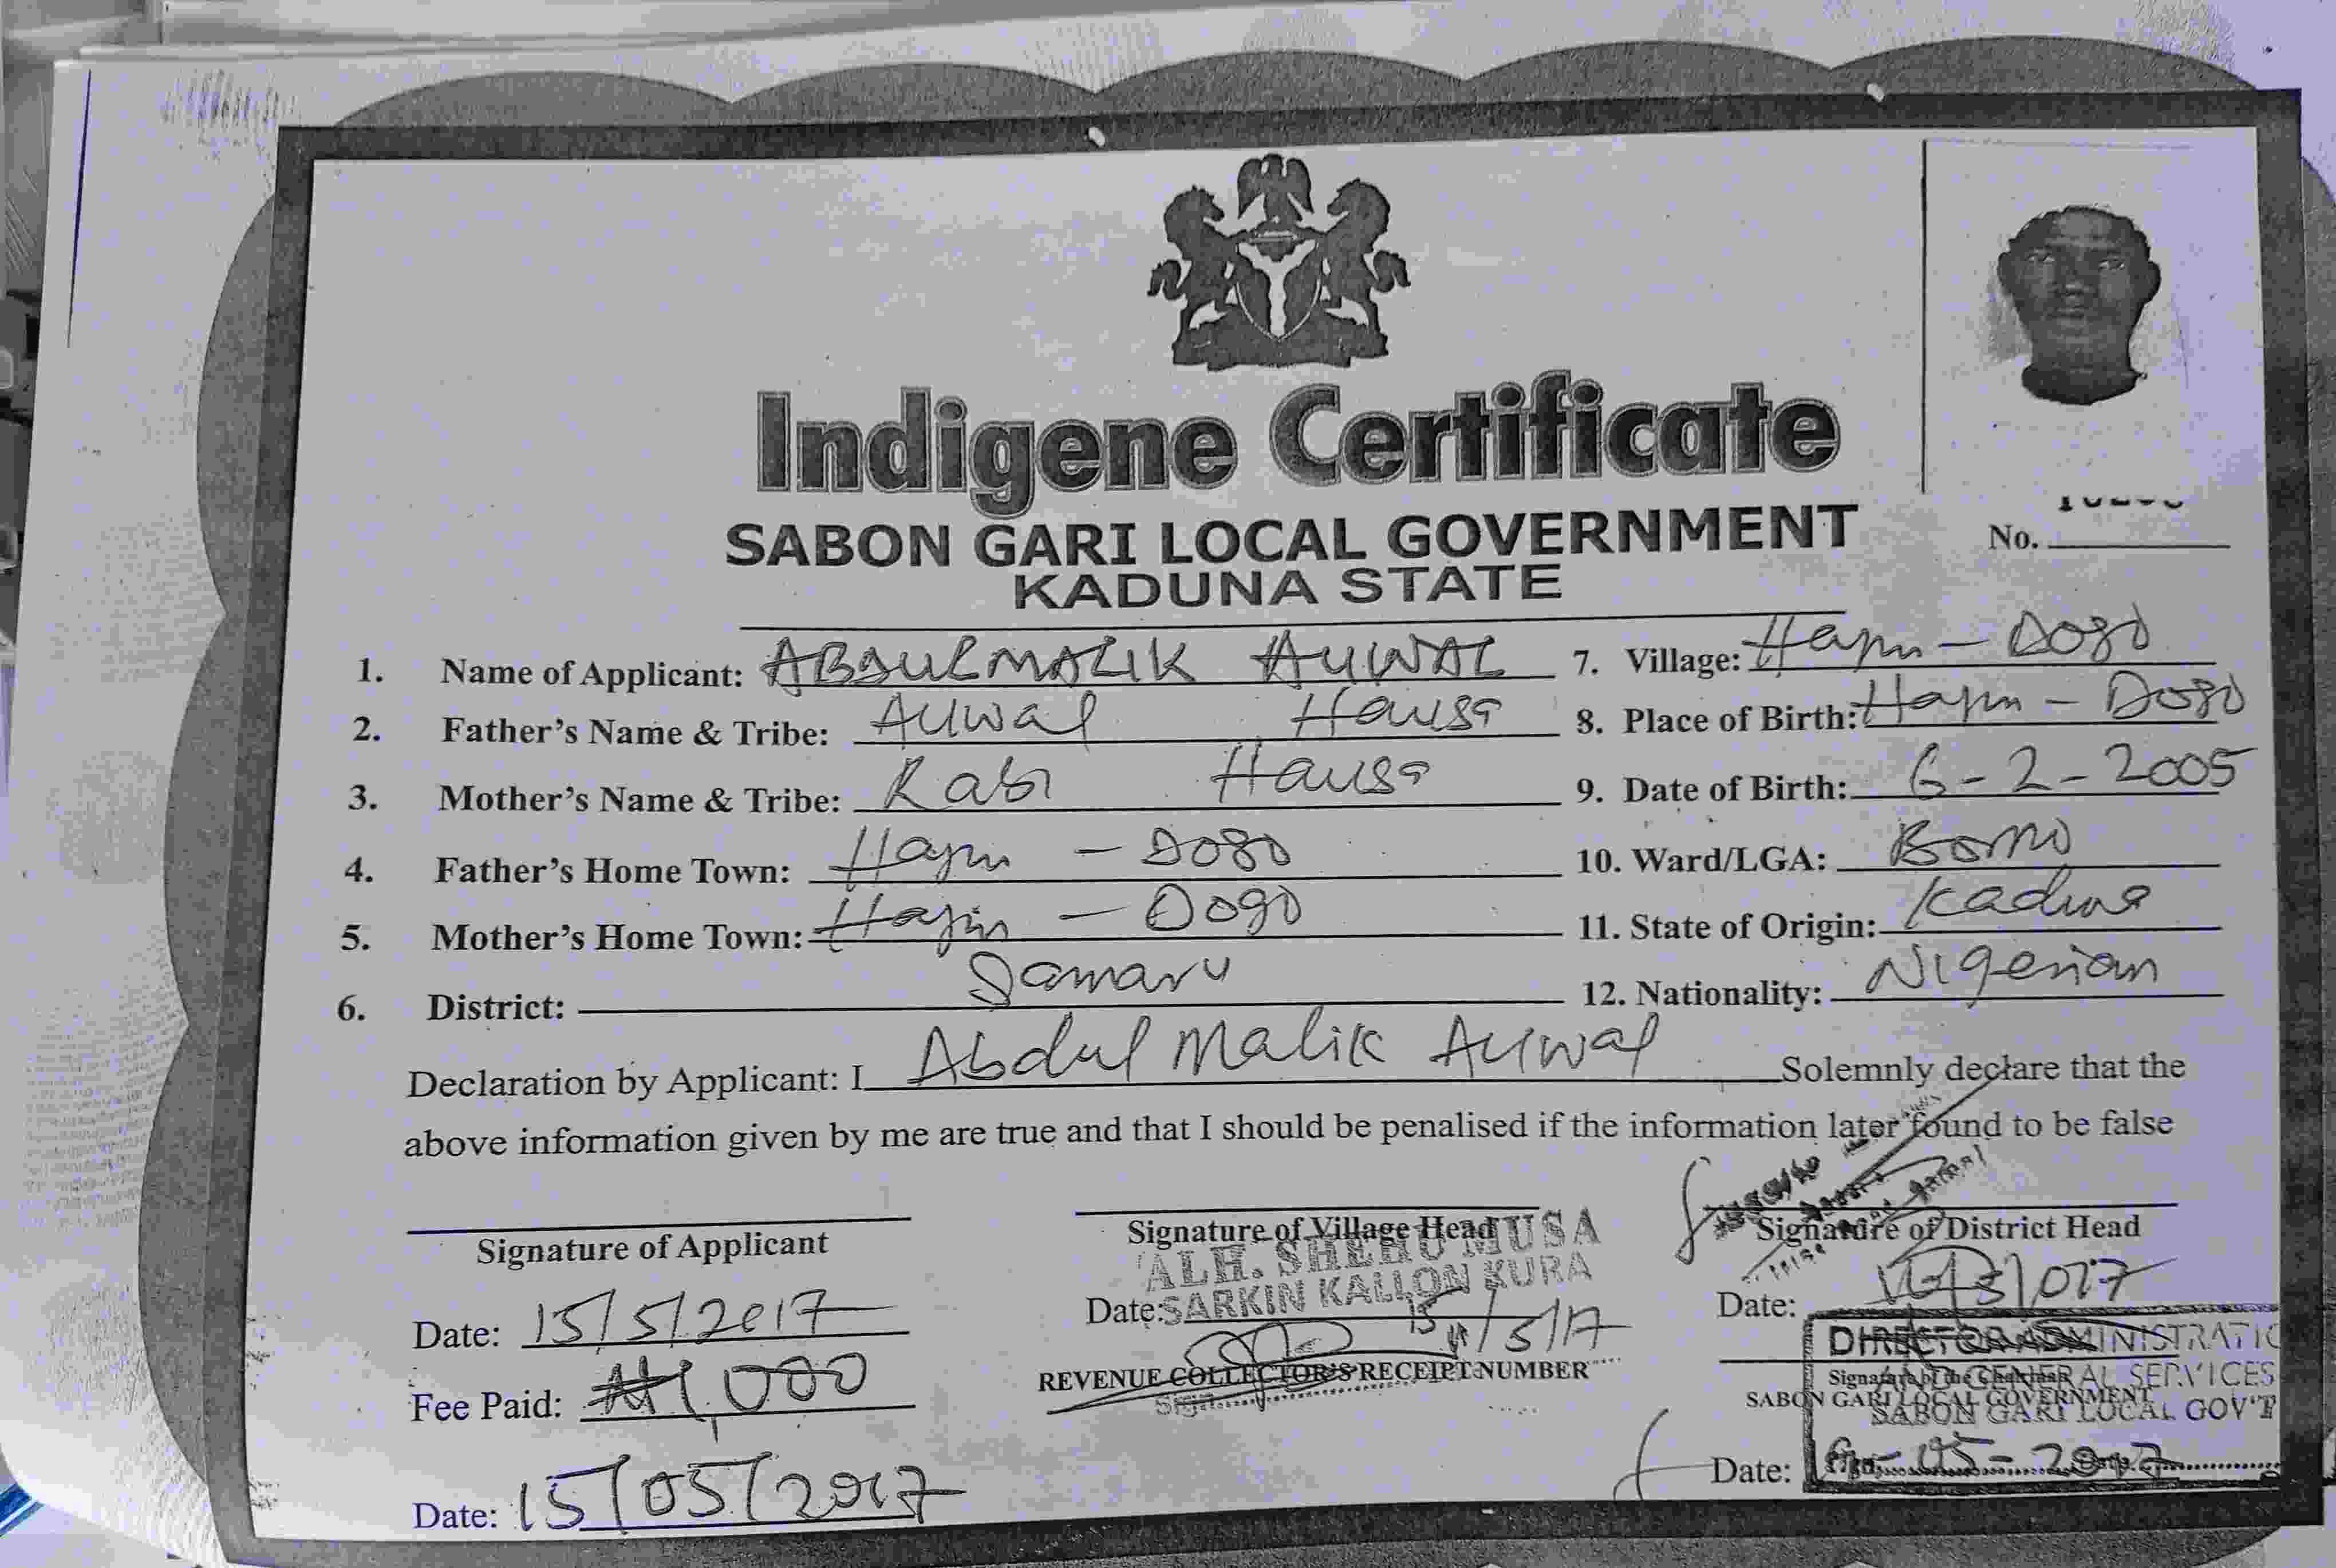 Indigene Certificate
SABON GARI LOCAL GOVERNMENT
KADUNA STATE
No.
1. Name of Applicant: ABDULMALIK AUWAL
2. Father's Name & Tribe: Auwal Hausa
3. Mother's Name & Tribe: Rabi Hausa
4. Father's Home Town: Hayin - Dogo
5. Mother's Home Town: Hayin - Dogo
6. District: Samaru
7. Village: Hayin - Dogo
8. Place of Birth: Hayin - Dogo
9. Date of Birth: 6-2-2005
10. Ward/LGA: Bomo
11. State of Origin: Kaduna
12. Nationality: Nigerian
Declaration by Applicant: I Abdul Malik Auwal Solemnly declare that the
above information given by me are true and that I should be penalised if the information later found to be false
Signature of Applicant
Date: 15/5/2017
Fee Paid: ₦1,000
Date: 15/05/2017
Signature of Village Head
ALH. SHEHU MUSA
SARKIN KALLON KURA
Date: 15/5/17
REVENUE COLLECTOR'S RECEIPT NUMBER
Signature of District Head
Date:
DIRECTOR ADMINISTRATIO
Signature of the Chairman
GENERAL SERVICES
SABON GARI LOCAL GOVERNMENT
SABON GARI LOCAL GOV'T
Date: 05-2017